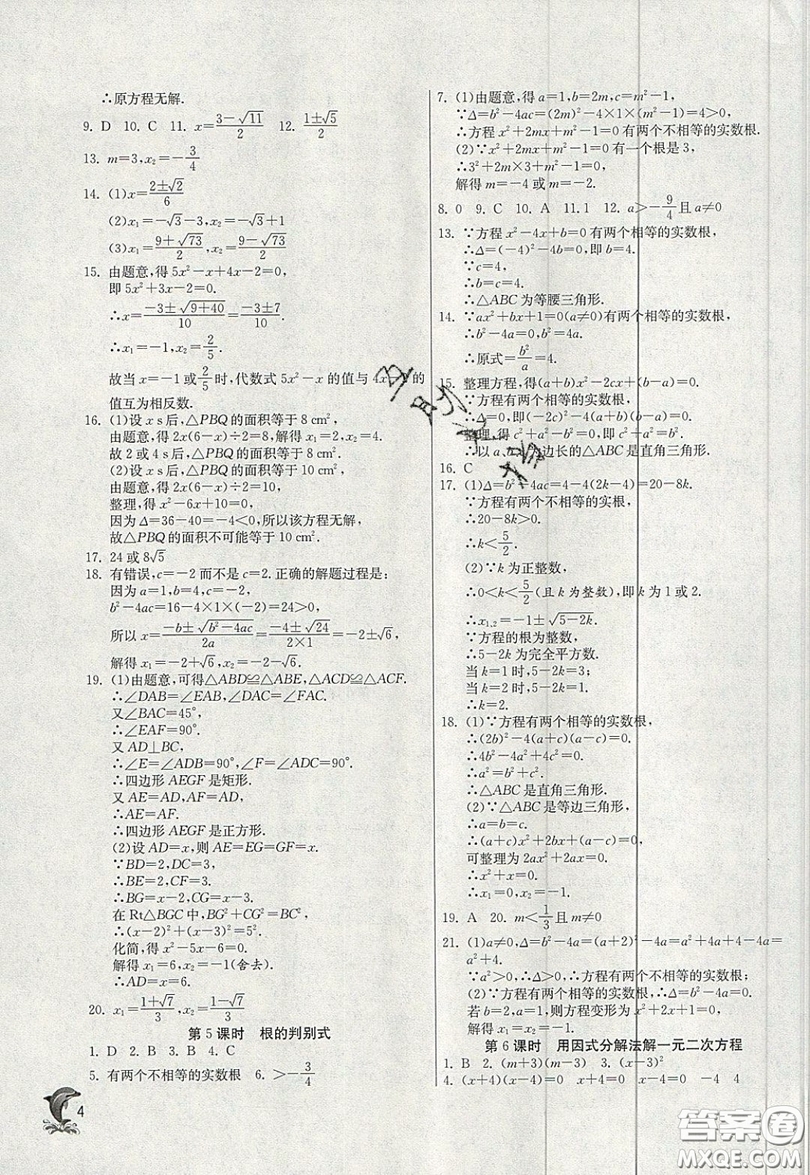 ∴原方程无解.
9. D 10. C 11. x=(3-√11)/2 12. (1±√5)/2
13. m=3,x₂=-3/4
14. (1)x=(2±√2)/6
(2)x₁=-√3-3,x₂=-√3+1
(3)x₁=(9+√73)/2,x₂=(9-√73)/2
15. 由题意,得5x²-x+4x-2=0,
即5x²+3x-2=0.
∴x=(-3±√(9+40))/10=(-3±7)/10.
∴x₁=-1,x₂=2/5.
故当x=-1或2/5时,代数式5x²-x的值与4x 的
值互为相反数.
16. (1)设x s后,△PBQ的面积等于8 cm²,
由题意,得2x(6-x)÷2=8,解得x₁=2,x₂=4.
故2或4 s后,△PBQ的面积等于8 cm².
(2)设x s后,△PBQ的面积等于10 cm²,
由题意,得2x(6-x)÷2=10,
整理,得x²-6x+10=0,
因为Δ=36-40=-4<0,所以该方程无解,
故△PBQ的面积不可能等于10 cm².
17. 24或8√5
18. 有错误,c=-2而不是c=2.正确的解题过程是:
因为a=1,b=4,c=-2,
b²-4ac=16-4×1×(-2)=24>0,
所以x=(-b±√(b²-4ac))/2a=(-4±√24)/(2×1)=-2±√6,
解得x₁=-2+√6,x₂=-2-√6.
19. (1)由题意,可得△ABD≌△ABE,△ACD≌△ACF.
∴∠DAB=∠EAB,∠DAC=∠FAC.
又∠BAC=45°,
∴∠EAF=90°.
又AD⊥BC,
∴∠E=∠ADB=90°,∠F=∠ADC=90°.
∴四边形AEGF是矩形.
又AE=AD,AF=AD,
∴AE=AF.
∴四边形AEGF是正方形.
(2)设AD=x,则AE=EG=GF=x.
∵BD=2,DC=3,
∴BE=2,CF=3.
∴BG=x-2,CG=x-3.
在Rt△BGC中,BG²+CG²=BC²,
∴(x-2)²+(x-3)²=5².
化简,得x²-5x-6=0.
解得x₁=6,x₂=-1(舍去).
∴AD=x=6.
20. x₁=(1+√7)/3,x₂=(1-√7)/3
第5课时 根的判别式
1. D 2. B 3. B 4. C
5. 有两个不相等的实数根 6. >-3/4
4
7. (1)由题意,得a=1,b=2m,c=m²-1,
∵Δ=b²-4ac=(2m)²-4×1×(m²-1)=4>0,
∴方程x²+2mx+m²-1=0有两个不相等的实数根.
(2)∵x²+2mx+m²-1=0有一个根是3,
∴3²+2m×3+m²-1=0,
解得m=-4或m=-2.
8. 0 9. C 10. A 11.1 12. a>-9/4且a≠0
13. ∵方程x²-4x+b=0有两个相等的实数根,
∴Δ=(-4)²-4b=0,即b=4.
∵c=4,
∴b=c=4.
∴△ABC为等腰三角形.
14. ∵ax²+bx+1=0(a≠0)有两个相等的实数根,
∴b²-4a=0,b²=4a.
∴原式=b²/a=4.
15. 整理方程,得(a+b)x²-2cx+(b-a)=0.
∵方程有两个相等的实数根,
∴Δ=0,即(-2c)²-4(a+b)(b-a)=0.
整理,得c²+a²-b²=0,即b²=a²+c².
∴以a 为边长的△ABC是直角三角形.
16. C
17. (1)Δ=b²-4ac=4-4(2k-4)=20-8k.
∵方程有两个不相等的实根,
∴20-8k>0.
∴k<5/2.
(2)∵k为正整数,
∴0<k<5/2(且k为整数),即k为1或2.
∴x₁,₂=-1±√(5-2k).
∵方程的根为整数,
∴5-2k为完全平方数.
当k=1时,5-2k=3;
当k=2时,5-2k=1.
∴k=2.
18. (1)∵方程有两个相等的实数根,
∴(2b)²-4(a+c)(a-c)=0.
∴4b²-4a²+4c²=0.
∴a²=b²+c².
∴△ABC是直角三角形.
(2)∵△ABC是等边三角形,
∴a=b=c.
∴(a+c)x²+2bx+(a-c)=0,
可整理为2ax²+2ax=0.
∴x²+x=0.
∴x₁=0,x₂=-1.
19. A 20. m<1/3且m≠0
21. (1)a≠0,Δ=b²-4a=(a+2)²-4a=a²+4a+4-4a=
a²+4.
∵a²>0,∴Δ>0,∴方程有两个不相等的实数根;
(2)∵方程有两个相等的实数根,∴Δ=b²-4a=0,
若b=2,a=1,则方程变形为x²+2x+1=0,
解得x₁=x₂=-1.
第6课时 用因式分解法解一元二次方程
1. B 2. (m+3)(m-3) 3. (x-3)²
4. (x+4)(x-4)=0 x+4=0 x-4=0 -4 4
答案圈
MXQE.COM